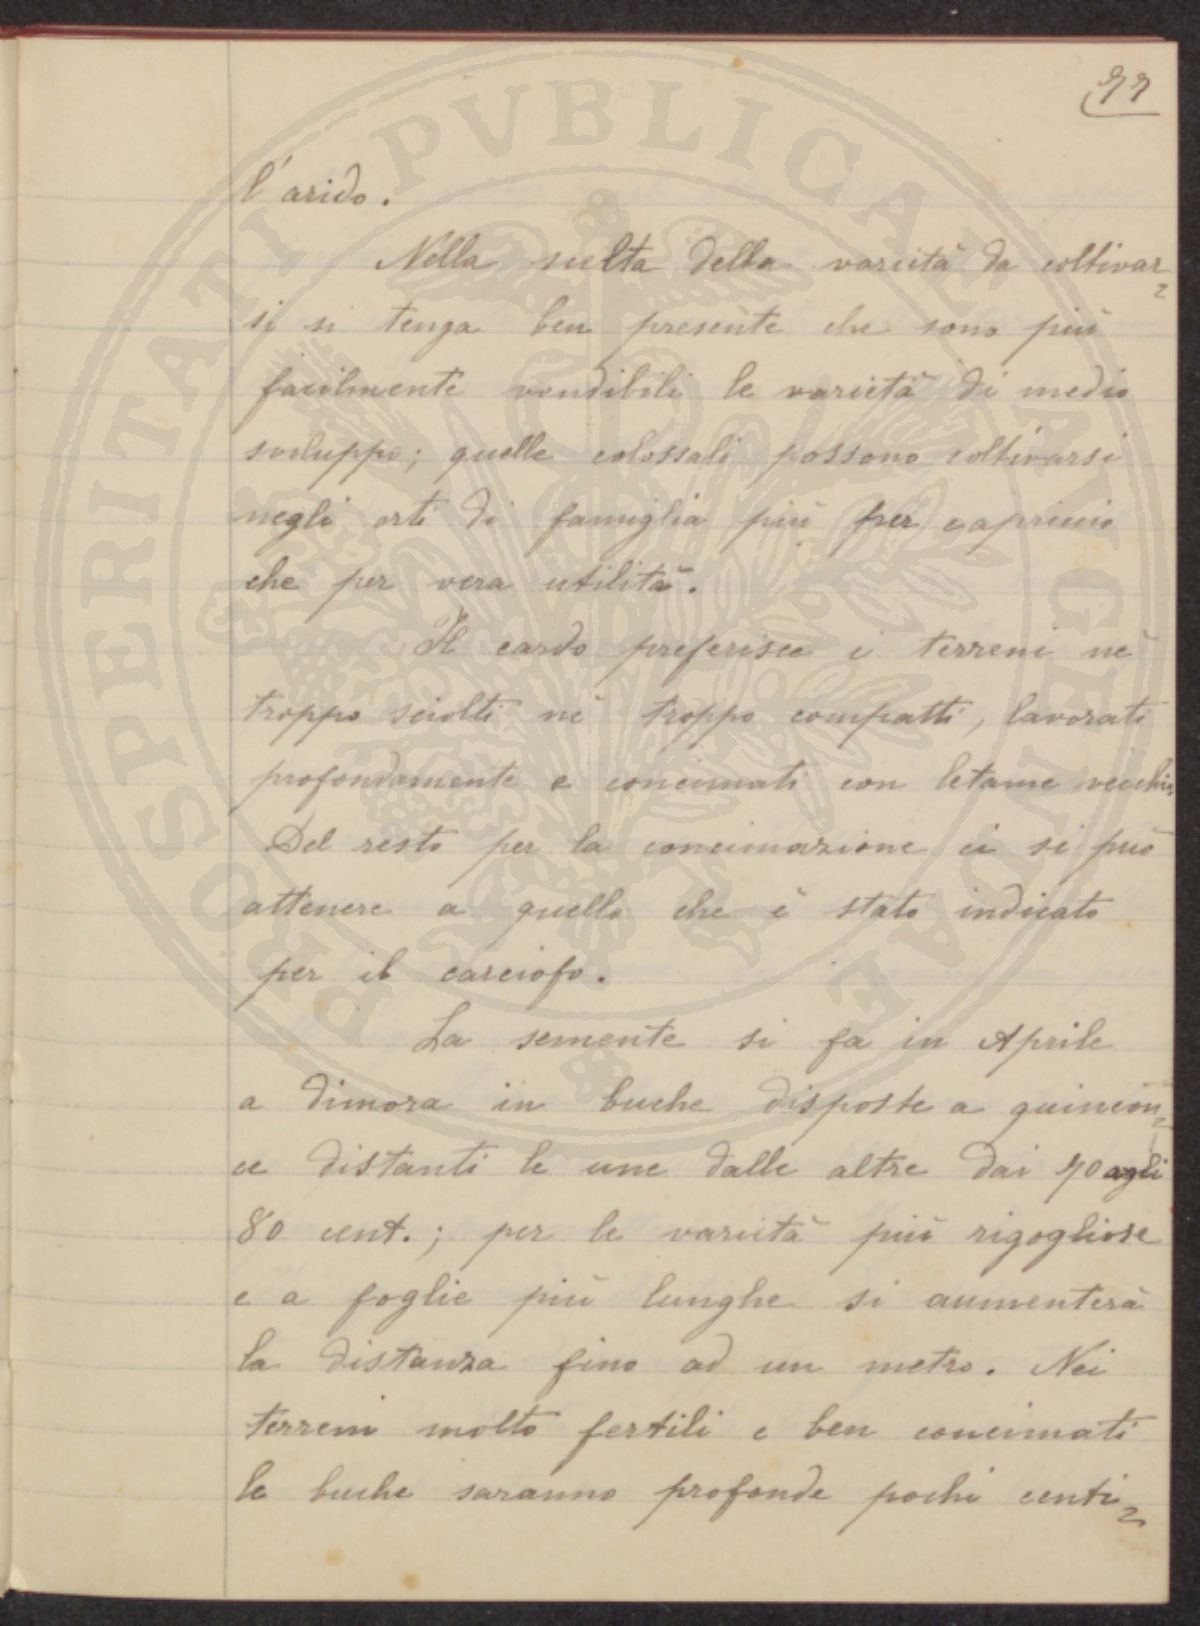 77
l'arido.
Nella scelta della varietà da coltivar=
si si tenga ben presente che sono più
facilmente vendibili le varietà di medio
sviluppo; quelle colossali possono coltivarsi
negli orti di famiglia più per capriccio
che per vera utilità.
Il cardo preferisce i terreni nè
troppo sciolti nè troppo compatti, lavorati
profondamente e concimati con letame vecchio.
Del resto per la concimazione ci si può
attenere a quello che è stato indicato
per il carciofo.
La semente si fa in Aprile
a dimora in buche disposte a quincon=
ce distanti le une dalle altre dai 70 agli
80 cent.; per le varietà più rigogliose
e a foglie più lunghe si aumenterà
la distanza fino ad un metro. Nei
terreni molto fertili e ben concimati
le buche saranno profonde pochi centi=
PROSPERITATI PVBLICAE AVGENDAE